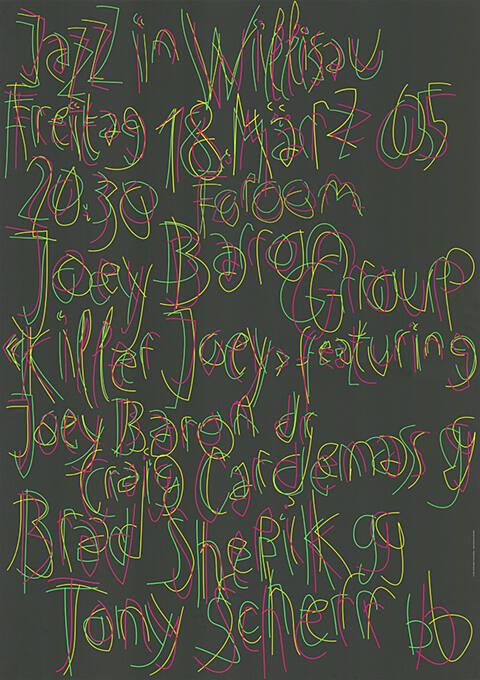 Jazz in Willisau
Freitag 18. März 05
20.30 Foroom
Joey Baron Group
«Killer Joey» featuring
Joey Baron dr
Craig Cardenass g
Brad Shepik g
Tony Scherr b